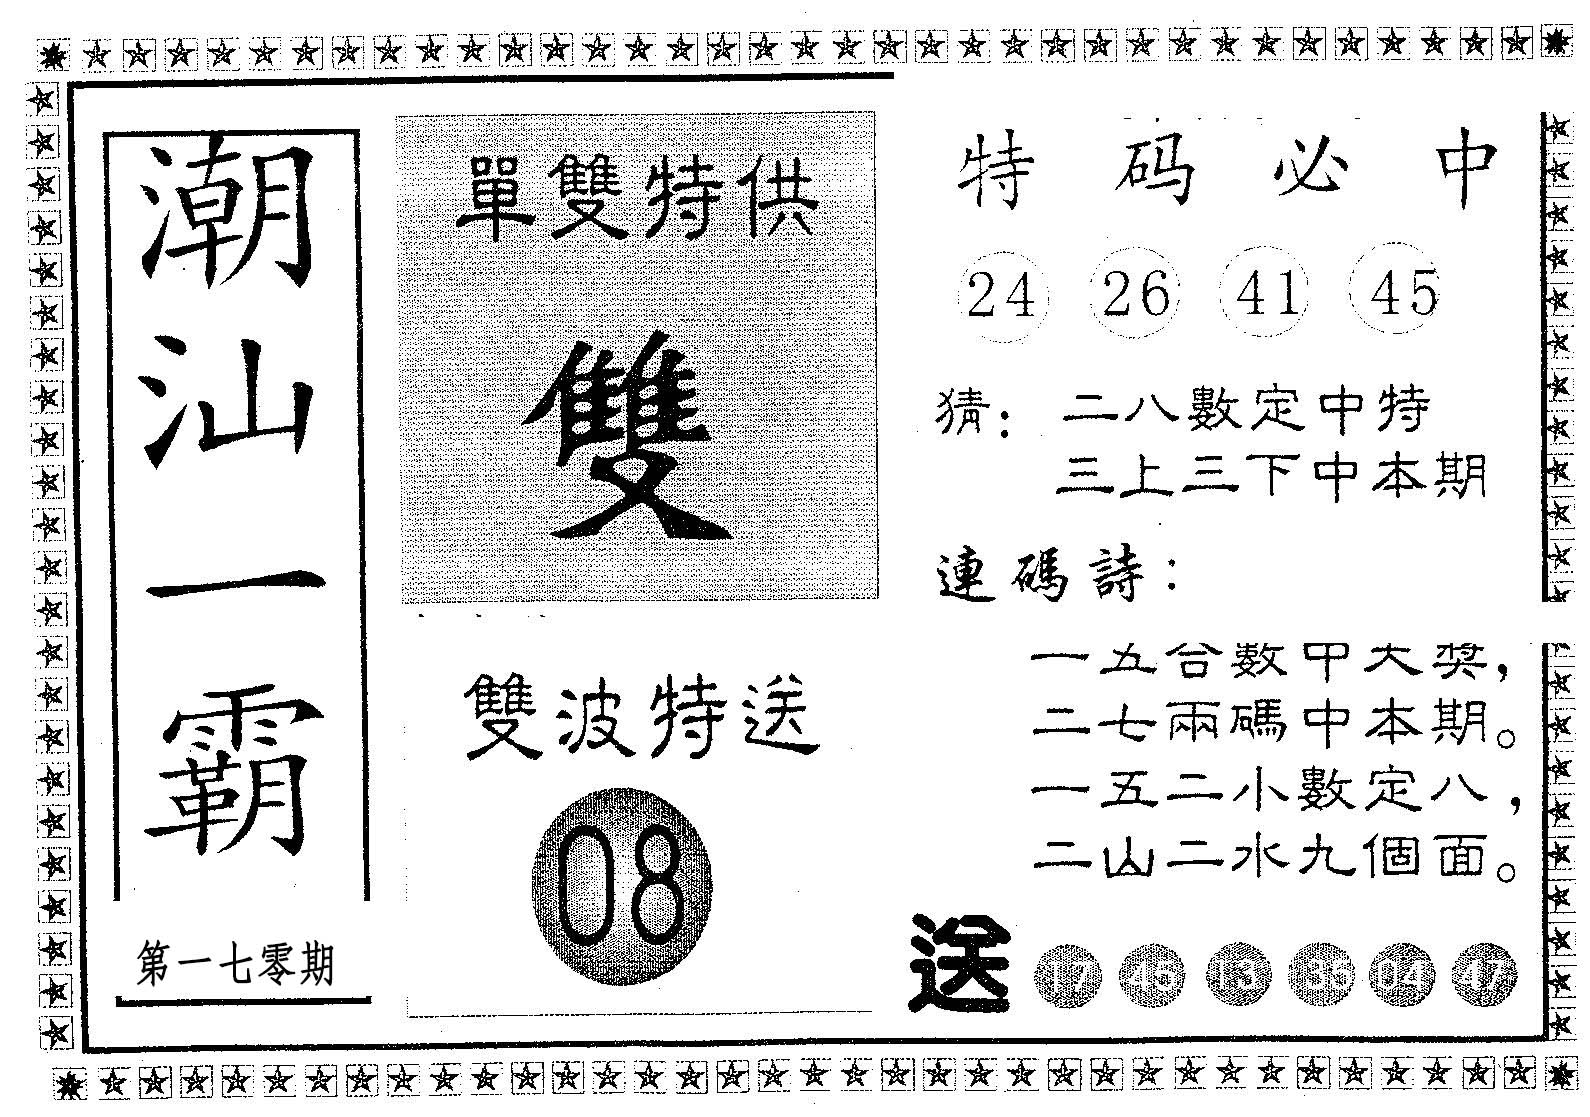 潮汕一霸
第一七零期
單雙特供
雙
雙波特送
08
特码必中
24 26 41 45
猜：二八數定中特
三上三下中本期
連碼詩：
一五合數中大獎，
二七兩碼中本期。
一五二小數定八，
二山二水九個面。
送 17 45 13 36 04 47